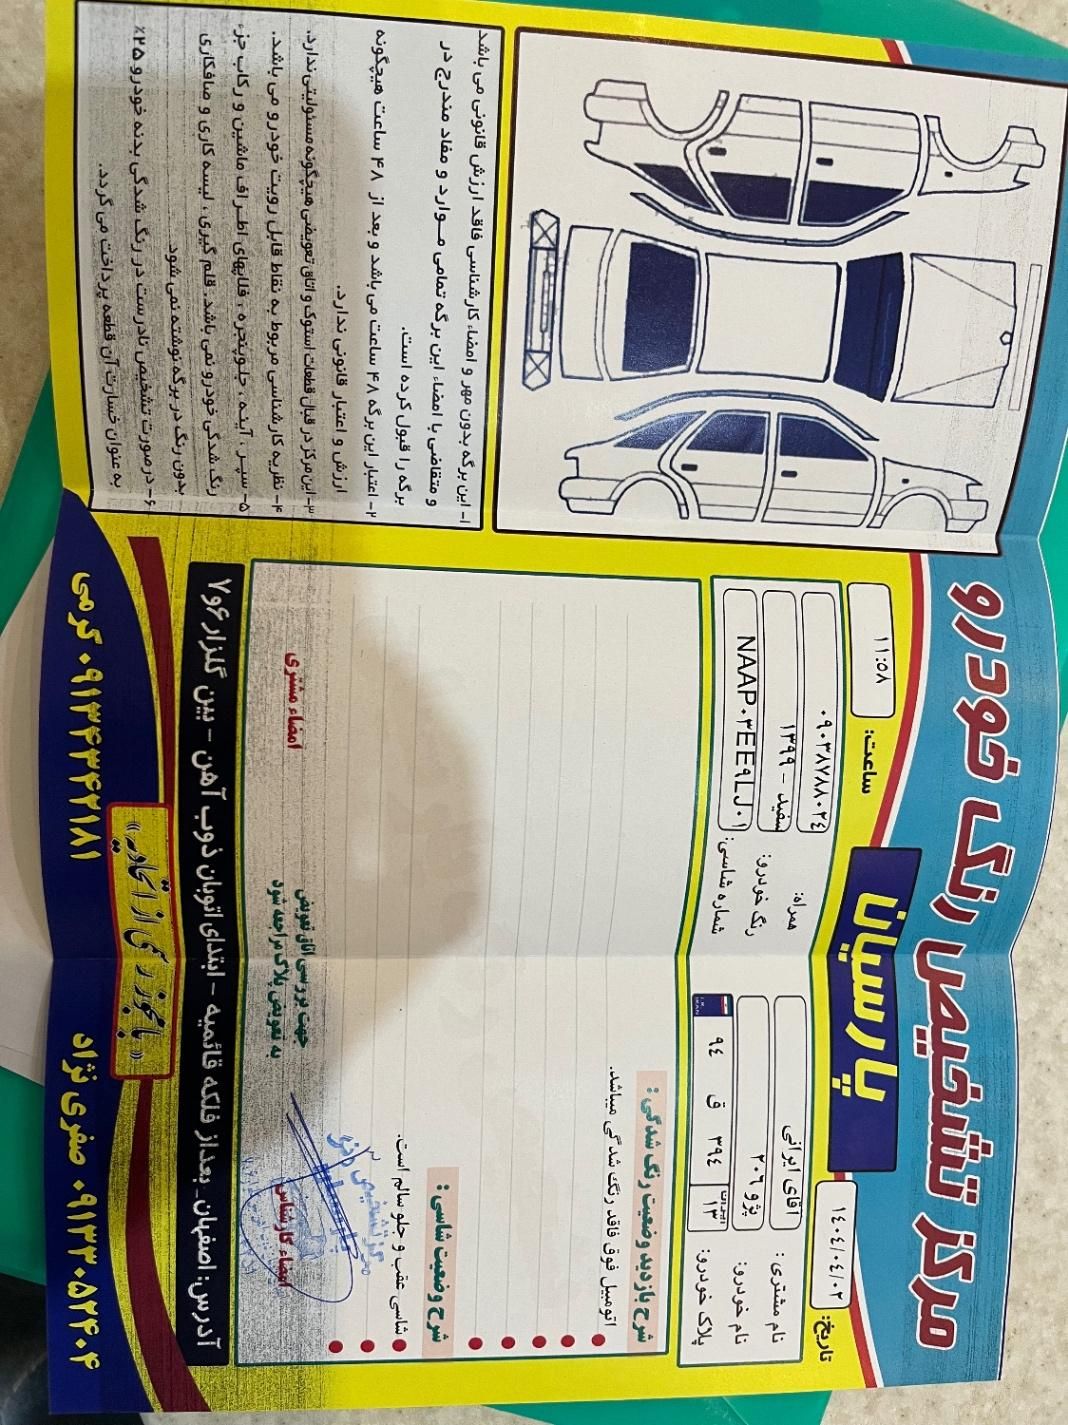 مرکز تشخیص رنگ خودرو
پارسیان
تاریخ:
۱٤۰٤/۰٤/۰۲
ساعت:
۱۱:۵۸
نام مشتری:
آقای ایرانی
همراه:
۰۹۰۳۸۷۸۸۰۲٤
نام خودرو:
پژو ۲۰۶
رنگ خودرو:
سفید - ۱۳۹۹
پلاک خودرو:
ایران ۱۳
۳۹٤ ق ۹٤
شماره شاسی:
NAAP۰۳EE۹LJ۰۱
شرح بازدید وضعیت رنگ شدگی:
اتومبیل فوق فاقد رنگ شدگی میباشد.
شرح وضعیت شاسی:
شاسی عقب و جلو سالم است.
امضاء کارشناس
جهت بررسی اتاق تعویض
به تعویض پلاک مراجعه شود
امضاء مشتری
آدرس: اصفهان - بعداز فلکه قائمیه - ابتدای اتوبان ذوب آهن - بین گلزار ۶و۷
با مجوز رسمی از اتحادیه
صفری نژاد ۰۹۱۳۳۰۵۲۴۰۴
۰۹۱۳۴۳۴۲۱۸۱ گرمی
۱- این برگه بدون مهر و امضاء کارشناسی فاقد ارزش قانونی می باشد
و متقاضی با امضاء این برگه تمامی مـوارد و مفاد مندرج در
برگه را قبول کرده است.
۲- اعتبار این برگه ۴۸ ساعت می باشد و بعد از ۴۸ ساعت هیچگونه
ارزش و اعتبار قانونی ندارد.
۳- این مرکز در قبال قطعات استوک و اتاق تعویضی هیچگونه مسئولیتی ندارد.
۴- نظریه کارشناسی مربوط به نقاط قابل رویت خودرو می باشد.
۵- سپر، آینـه، جلوپنجره، فلاپهای اطـراف ماشین و رکاب جزء
رنگ شدگی خودرو نمی باشد. قلم گیری، لیسه کاری و صافکاری
بدون رنگ در برگه نوشته نمی شود
۶- در صورت تشخیص نادرست در رنگ شدگی بدنه خودرو ۲۵٪
به عنوان خسارت آن قطعه پرداخت می گردد.